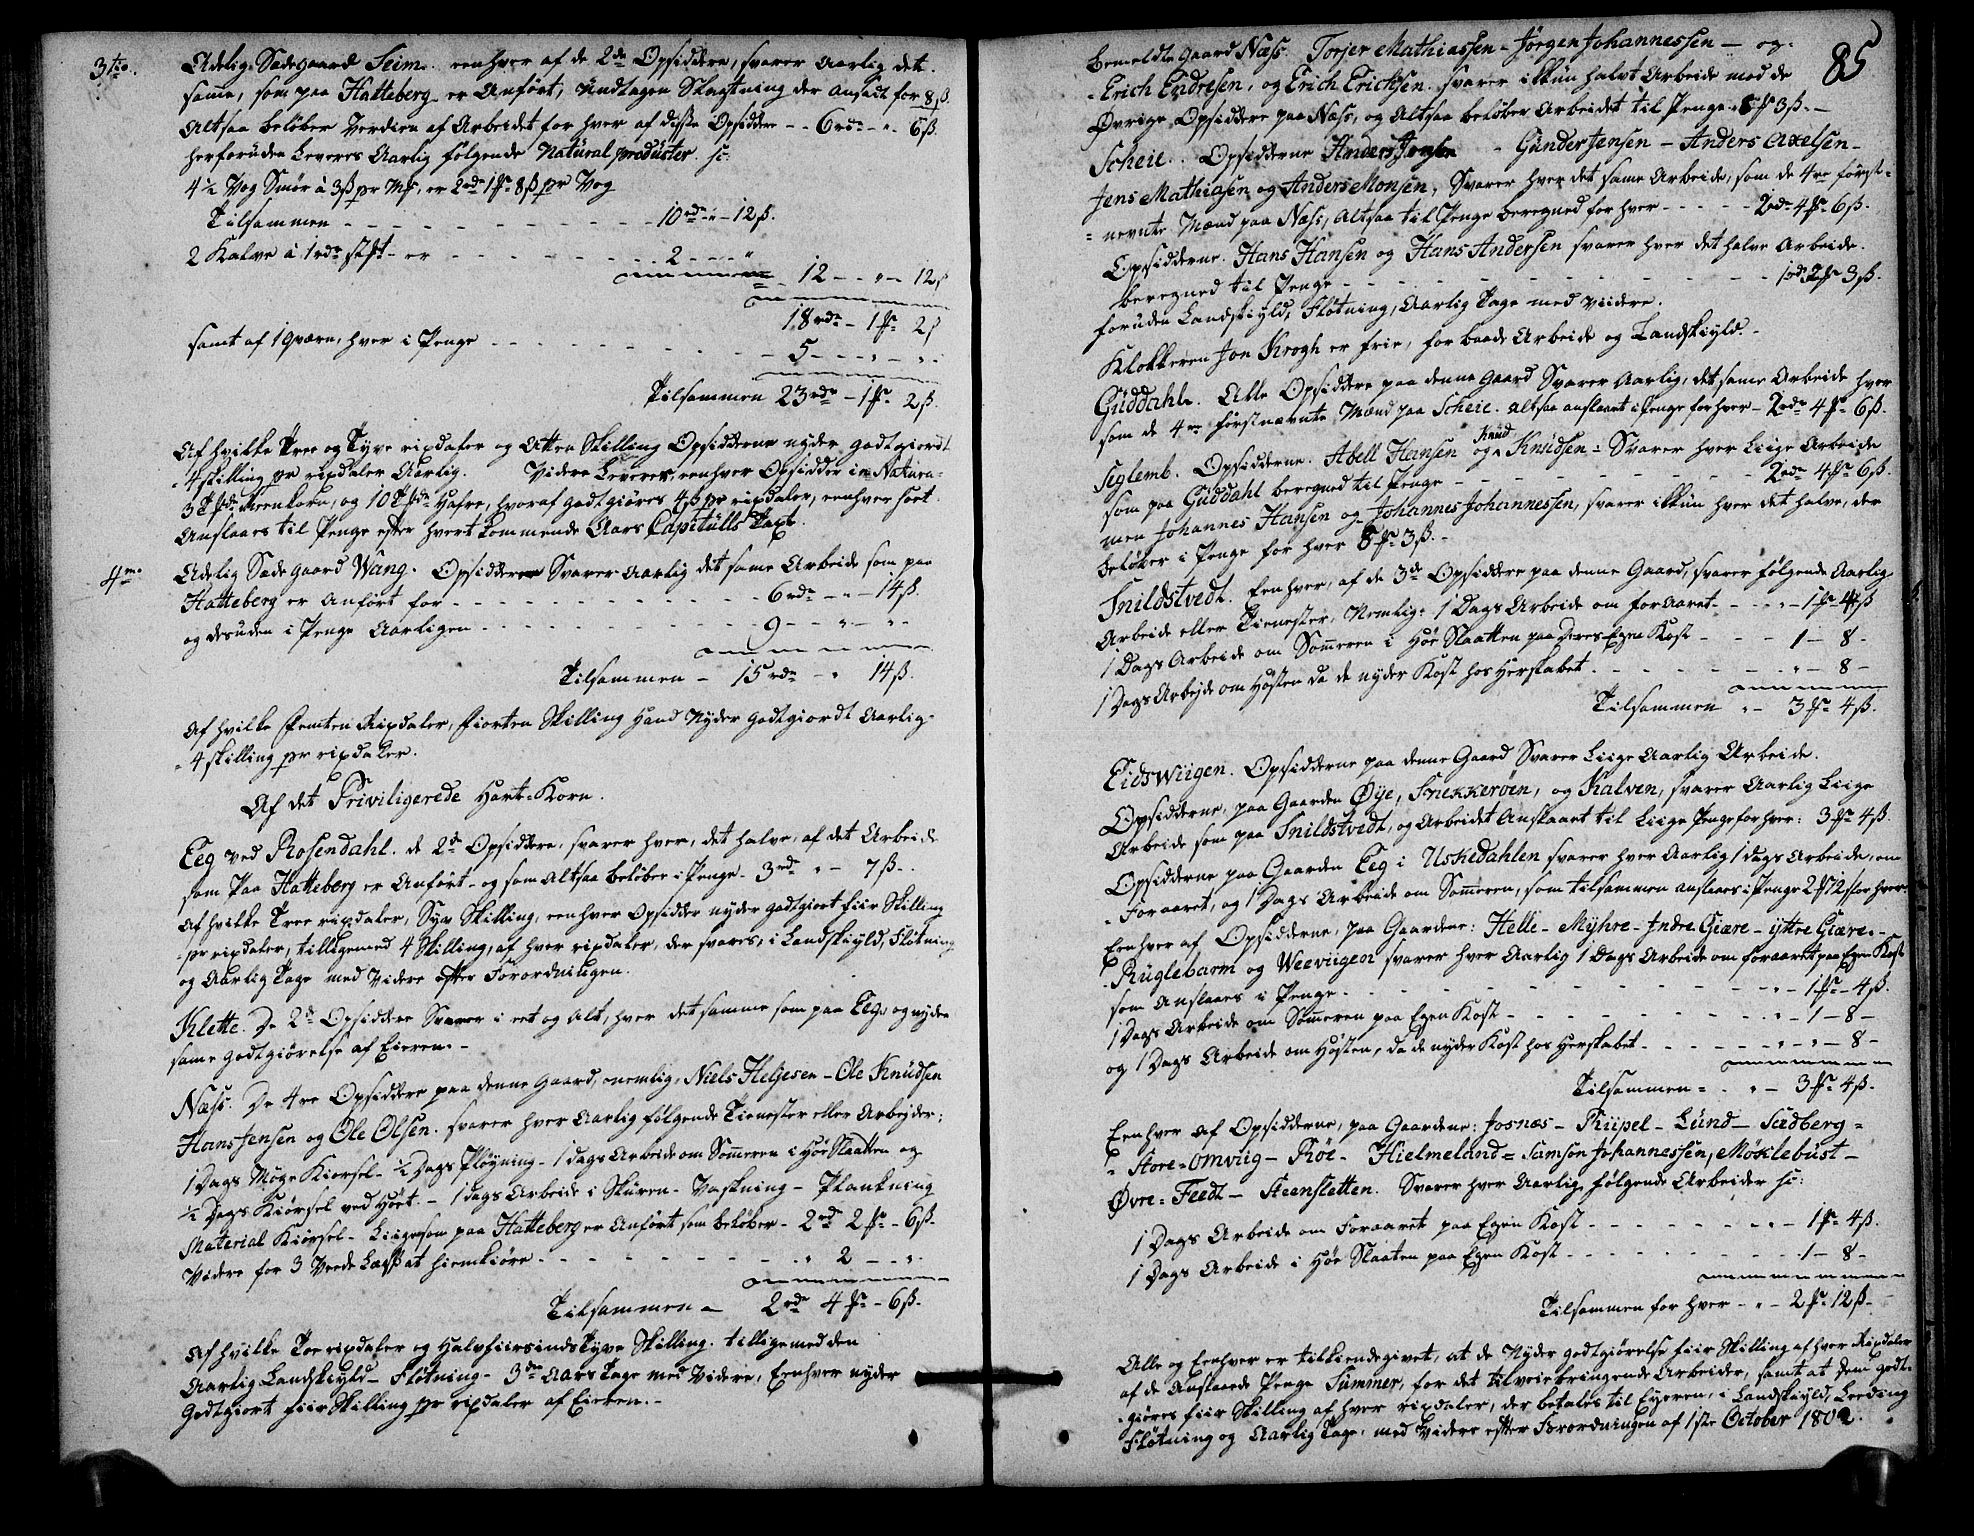 3tio. Adelig Sædegaard Seim. eenhver af de 2de Opsiddere, svarer Aarlig det
same, som paa Hatteberg er Anført, Undtagen Slagtning der ansadt for 8 ß.
Altsaa beløber Verdien af Arbeidet for hver af disse Opsiddere - - 6 rdr - „ 6 ß.
herforuden Leveres Aarlig følgende Natural producter. sc:
4 ½ Vog Smør à 3ß pr Mk, er 2rdr 1 ... 8ß pr Vog
Tilsammen - - - - - - 10 rdr „ - 12 ß.
2 Kalve à 1 rdr st - er - - - - - 2 - - - „
12 - - „ - 12 ß
18 rdr - 1 ... 2 ß
samt af 1 Qværn, hver i Penge - - - - - - 5 - - - „ - „
Tilsammen 23 rdr - 1 ... 2 ß.
Af hvilke Tree og Tyve rixdaler og Atten Skilling Opsidderne nyder godtgiordt
4 skilling pr rixdaler Aarlig. Videre Leverer eenhver Opsidder in Natura
3 ... Reenkorn, og 10 ... Hafre, hvoraf godtgiøres 4ß pr rixdaler, eenhver sort
Anslaaes til Penge efter hvert kommende Aars Capituls Taxt.
4to. Adelig Sædegaard Wang. Opsidderen Svarer Aarlig det same Arbeide som paa
Hatteberg er Anført for - - - - - - 6 rdr - „ - 14 ß.
og desuden i Penge Aarligen - - - - - 9 - - „ - „
Tilsammen - 15 rdr - „ 14 ß.
Af hvilke Femten Rixdaler, fiorten Skilling Hand Nyder godtgiordt Aarlig
4 skilling pr rixdaler.
Af det Priviligerede Hart-Korn.
Eeg ved Rosendahl. de 2de Opsiddere, svarer hver, det halve, af det Arbeide
som Paa Hatteberg er Anført - og som Altsaa beløber i Penge - 3 rdr „ - 7 ß - .
Af hvilke Tree rixdaler, Syv Skilling, eenhver Opsidder nyder godtgiort fiir Skilling
pr rixdaler, tilligemed 4 Skilling, af hver rixdaler, der svares i Landskyld, Fløtning
og Aarlig Tage med Videre efter Forordningen.
Klette. De 2de Opsiddere Svarer i eet og Alt, hver det samme som paa Eeg, og nyder
same godtgiørelse af Eieren. -
Næss. De 4re Opsiddere paa denne Gaard, nemlig, Niels Heljesen - Ole Knudsen
Hans Jensen og Ole Olsen. svarer hver Aarlig følgende Tienester eller Arbeyder:
1 Dags Møge Kiørsel - ½ Dags Pløyning - 1 dags Arbeide om Someren i Høe Slaatten og
½ Dags Kiørsel ved Høet - 1 dags Arbeide i Skuren - Vaskning - Plankning
Material Kiørsel - Liigesom paa Hatteberg er Anført som beløber - 2 rdr 2 ... - 6 ß.
Videre for 3 Veede Læss at hiemkiøre - - - - - „ 2 - - „
Tilsammen - 2 rdr 4 ... - 6 ß.
Af hvilke Toe rixdaler og Halvfiersindstyve Skilling. tilligemed den
Aarlig Landskyld - Fløtning - 3de Aars Tage med Videre, Eenhver nyder
Godtgiort fiir Skilling pr rixdaler af Eieren. -
85
bemeldte Gaard Næss. Torjer Mathiassen - Jørgen Johannessen - og
Erich Endresen, og Erich Erichsen. svarer ikkun halvt Arbeide med de
Øvrige Opsiddere paa Næss, og Altsaa beløber Arbeidet til Penge - 8 ... 3 ß. -
Scheie. Opsidderne - Gunder Jensen - Anders Axelsen -
Jens Mathiasen og Anders Monsen, Svarer hver det same Arbeide, som de 4re først-
nevnte Mænd paa Næss, Altsaa til Penge beregned for hver - - - 2 rdr 4 ... 6 ß.
Opsidderne. Hans Hansen og Hans Andersen svarer hver det halve Arbeide.
beregned til Penge - - - - - - 1 rdr 2 ... 3 ß.
foruden Landskyld, Fløtning, Aarlig Tage med Viidere.
Klokkeren Jon Krogh er frie, for baade Arbeide og Landskyld. -
Guddahl. Alle Opsiddere paa denne gaard Svarer Aarlig, det same Arbeide hver
som de 4re førstnævnte Mænd paa Scheie. altsaa anslaaet i Penge for hver - 2 rdr 4 ... 6 ß.
Seglemb. Opsidderne. Abell Hansen og Knud Knudsen - Svarer hver Liige Arbeide
som paa Guddahl beregned til Penge - - - - - - 2 rdr 4 ... 6 ß.
men Johannes Hansen og Johannes Johannessen, svarer ikkun hver det halve, der
beløber i Penge for hver 8 ... 3 ß. -
Snildstvedt. Eenhver, af de 3de Opsiddere paa denne Gaard, svarer følgende Aarlig
Arbeide eller Tienester, Nemlig: 1 Dags Arbeide om forAaret - - - „ - 1 ... 4 ß
1 Dags Arbeide om Someren i Høe Slaatten paa deres Egen Kost - - - 1 - 8 -
1 Dags Arbeyde om Høsten da de nyder Kost hos Herskabet - - - - „ - 8 -
Tilsammen „ - 3 ... 4 ß.
Eidswiigen. Opsidderne paa denne Gaard Svarer Liige Aarlig Arbeide.
Opsidderne, paa Gaarden Øye, Snekkerøen, og Kalven, svarer Aarlig Liige
Arbeide som paa Snildstvedt, og Arbeidet Anslaaet til Liige Penge for hver: 3 ... 4 ß.
Opsidderne paa Gaarden Eeg i Uskedahlen svarer hver Aarlig 1 dags Arbeide, om
Foraaret, og 1 Dags Arbeide om Someren, som tilsammen anslaaes i Penge 2 ... 12 ß for hver
Eenhver af Opsidderne, paa Gaardene: Helle - Myhre - Indre Giære - yttre Giære -
Ruglebarm og Weeviigen svarer hver Aarlig 1 Dags Arbeide om foraaret paa Egen Kost
som Anslaaes i Penge - - - - - - „ - 1 ... - 4 ß.
1 Dags Arbeide om Someren paa Egen Kost - - - - - „ - 1 - 8 -
og 1 Dags Arbeide om Høsten, da de nyder Kost hos Herskabet - - - - „ - „ - 8 -
Tilsammen - . „ - 3 ... 4 ß.
Eenhver af Opsidderne, paa Gaardene: Josnæs - Rupel - Lund - Sudberg -
Store-Omviig - Røe - Hielmeland = Samson Johannessen, Møklebust -
Øvre - Feedt - Steensletten. Svarer hver Aarlig følgende Arbeider sc:
1 Dags Arbeide om Foraaret paa Egen Kost - - - - - „ - 1 ... 4 ß.
1 Dags Arbeide i Høe Slaaten paa Egen Kost - - - - - 1 - 8 -
Tilsammen for hver - „ - 2 ... 12 ß. -
Alle og Eenhver er tilkiendegivet, at de Nyder godtgiørelse fiir Skilling af hver Rixdaler
af de Anslaaede Penge Summer, for det tilveiebringende Arbeider, samt at dem godt-
giøres fiir Skilling af hver rixdaler, der betales til Eyeren, i Landskyld, Leeding
Fløtning og Aarlig Tage, med Videre efter Forordningen af 1ste October 1802.